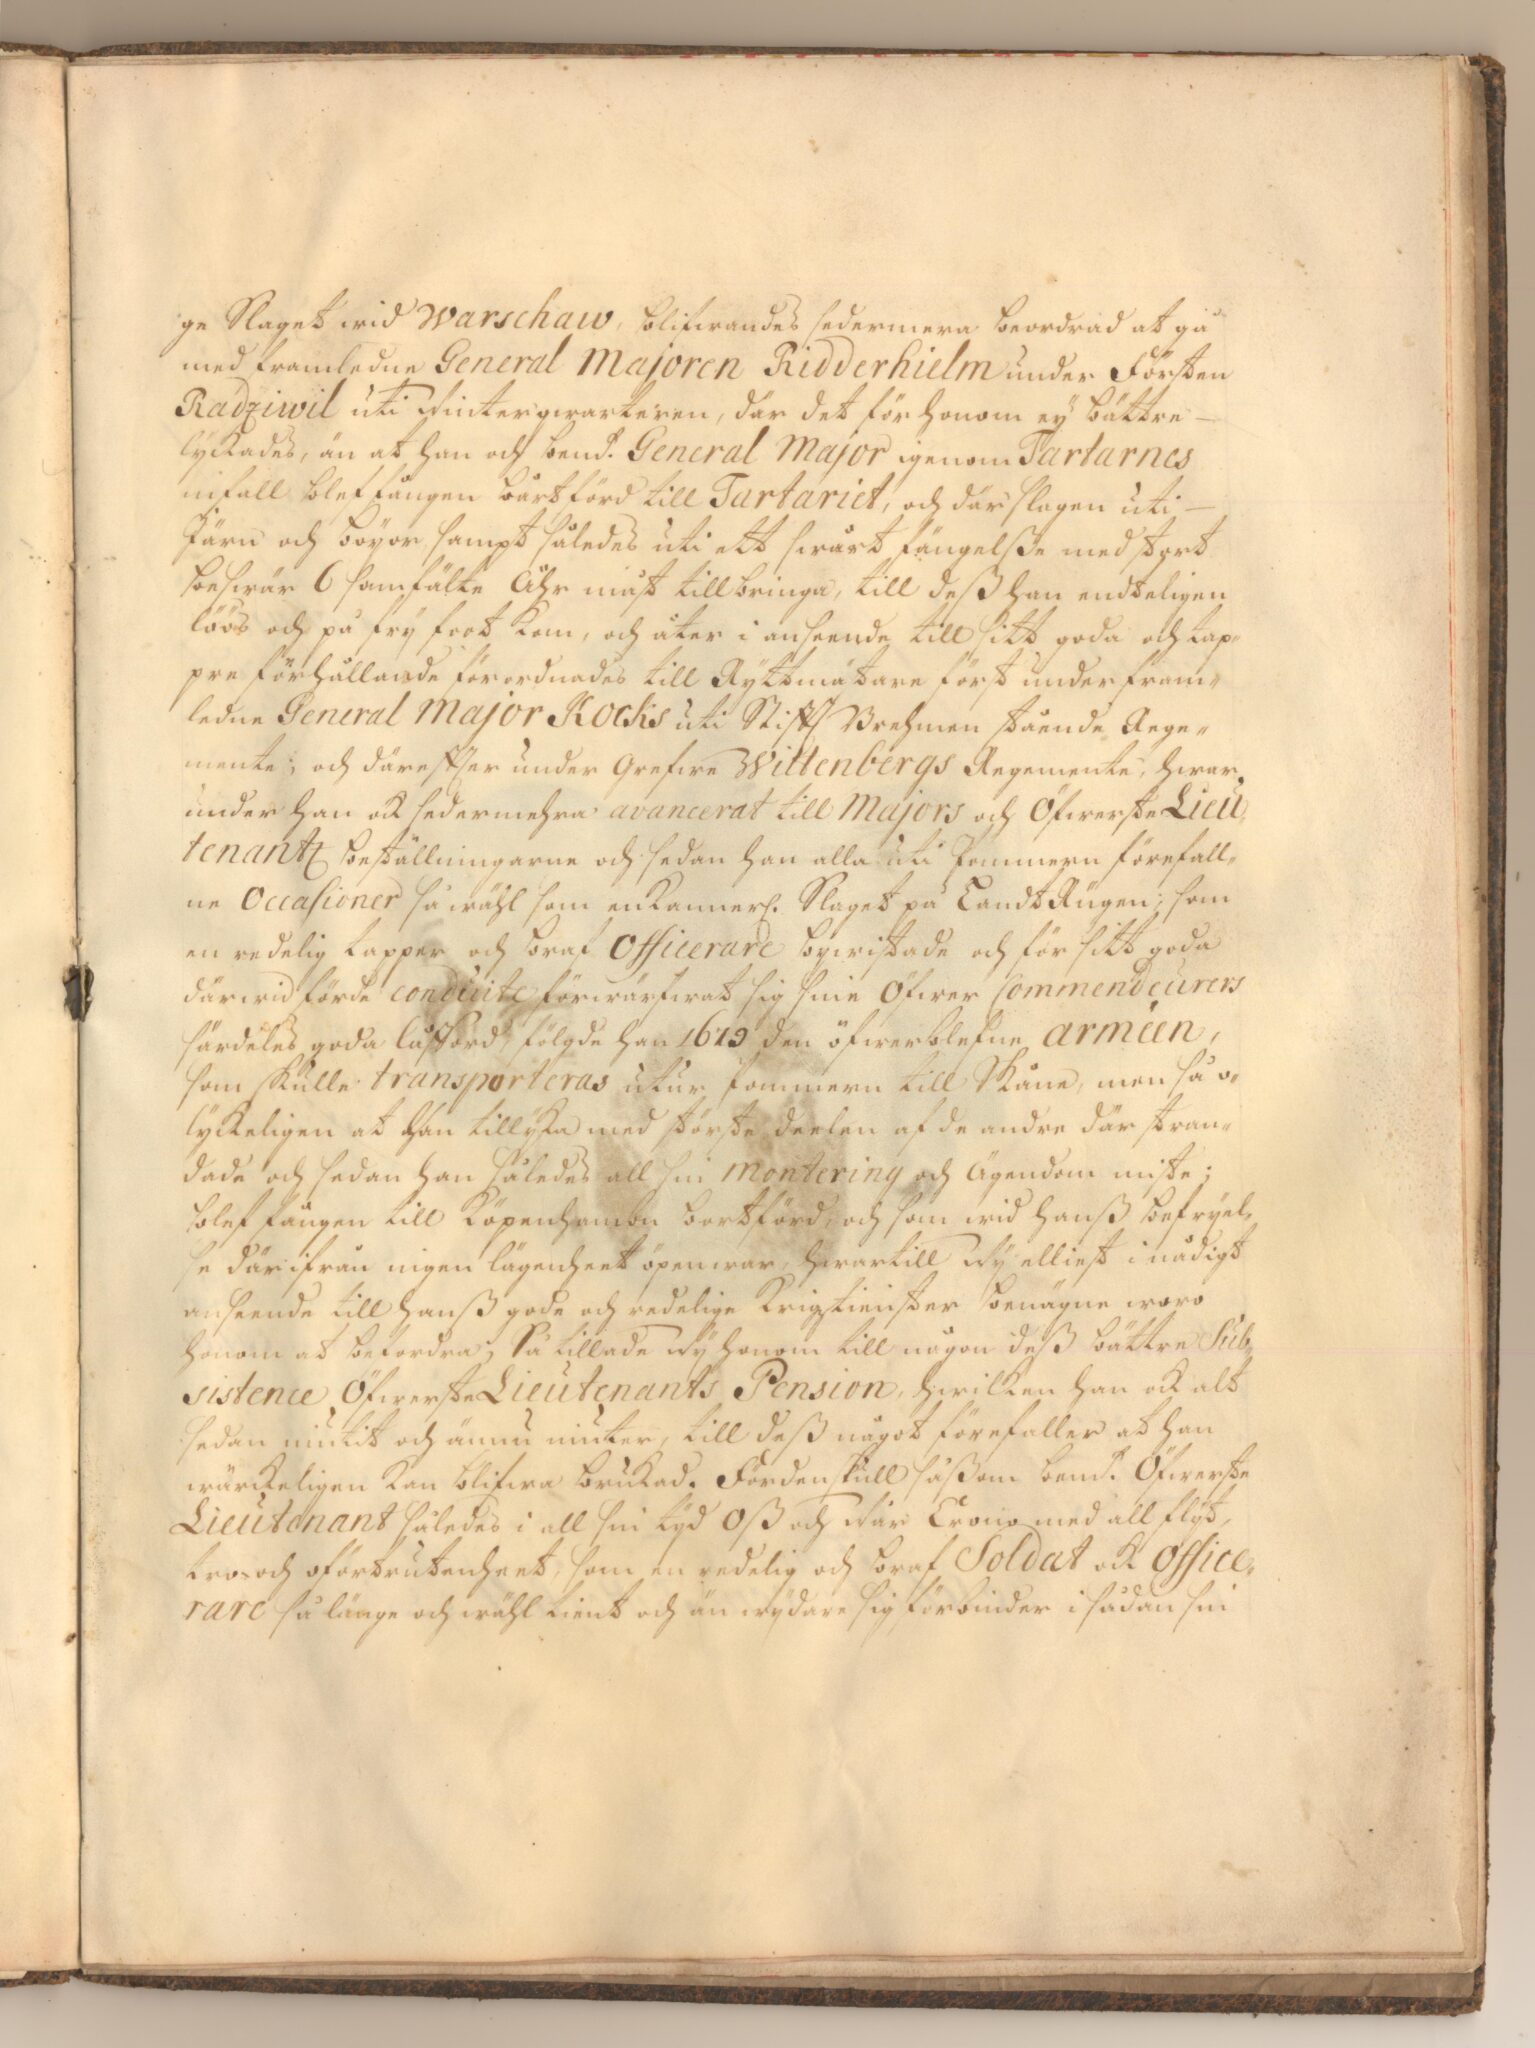 ge Slaget wid Warschaw, blifwandes sedermera beordrad at gå
med framledne General Majoren Ridderhielm under Försten
Radziwil uti Winterqwarteren, där det för honom eÿ bättre
lÿckades, än at han och bemd. General Major igenom Tartarnes
infall blef fången bårtförd till Tartariet, och där slagen uti
Järn och boyor sampt således uti ett swårt fängelße med stort
beswär 6 samfälte Åhr måst tillbringa, till deß han endteligen
löös och på frÿ foot kom, och åter i anseende till sitt goda och tap-
pre förhållande förordnades till Rÿttmästare först under fram-
ledne General Major Kocks uti Stifft Brehmen stående Rege-
mente; och däreffter under Grefwe Wittenbergs Regemente, hwar
under han ock sedermehra avancerat till Majors och Öfwerste Lieu-
tenantz beställningarne och sedan han alla uti Pommern förefall-
ne Occasioner så wähl som enkannerl. Slaget på Landt Rügen; som
en redelig tapper och braf Officerare bywistade och för sitt goda
därwid förde conduite förwärfwat sig sine Öfwer Commendeurers
särdeles goda låfford, fölgde han 1679 den öfwerblefne arméen,
som skulle transporteras utur Pommern till Skåne, men så o-
lÿckeligen at han tillÿka med störste deelen af de andre där stran-
dade och sedan han således all sin montering och Ägendom miste;
blef fången till Köpenhamn bortförd, och som wid hanß befrÿel-
se därifrån ingen lägenheet öpen war, hwartill Wÿ elliest i nådigt
anseende till hanß gode och redelige Krigztienster benägne woro
honom at befordra; Så tillade Wÿ honom till någon deß bättre Sub-
sistence Öfwerste Lieutenants Pension, hwilken han ock alt
sedan niutit och ännu niuter, till deß något förefaller at han
würckeligen kan blifwa brukad. Fördenskull såßom bemd. Öfwerste
Lieutenant således i all sin tÿd Oß och Wår Crono med all flÿt,
tro och oförtrutenheet, som en redelig och braf Soldat ock Office-
rare så länge och wähl tient och än wÿdare sig förbinder i sådan sin